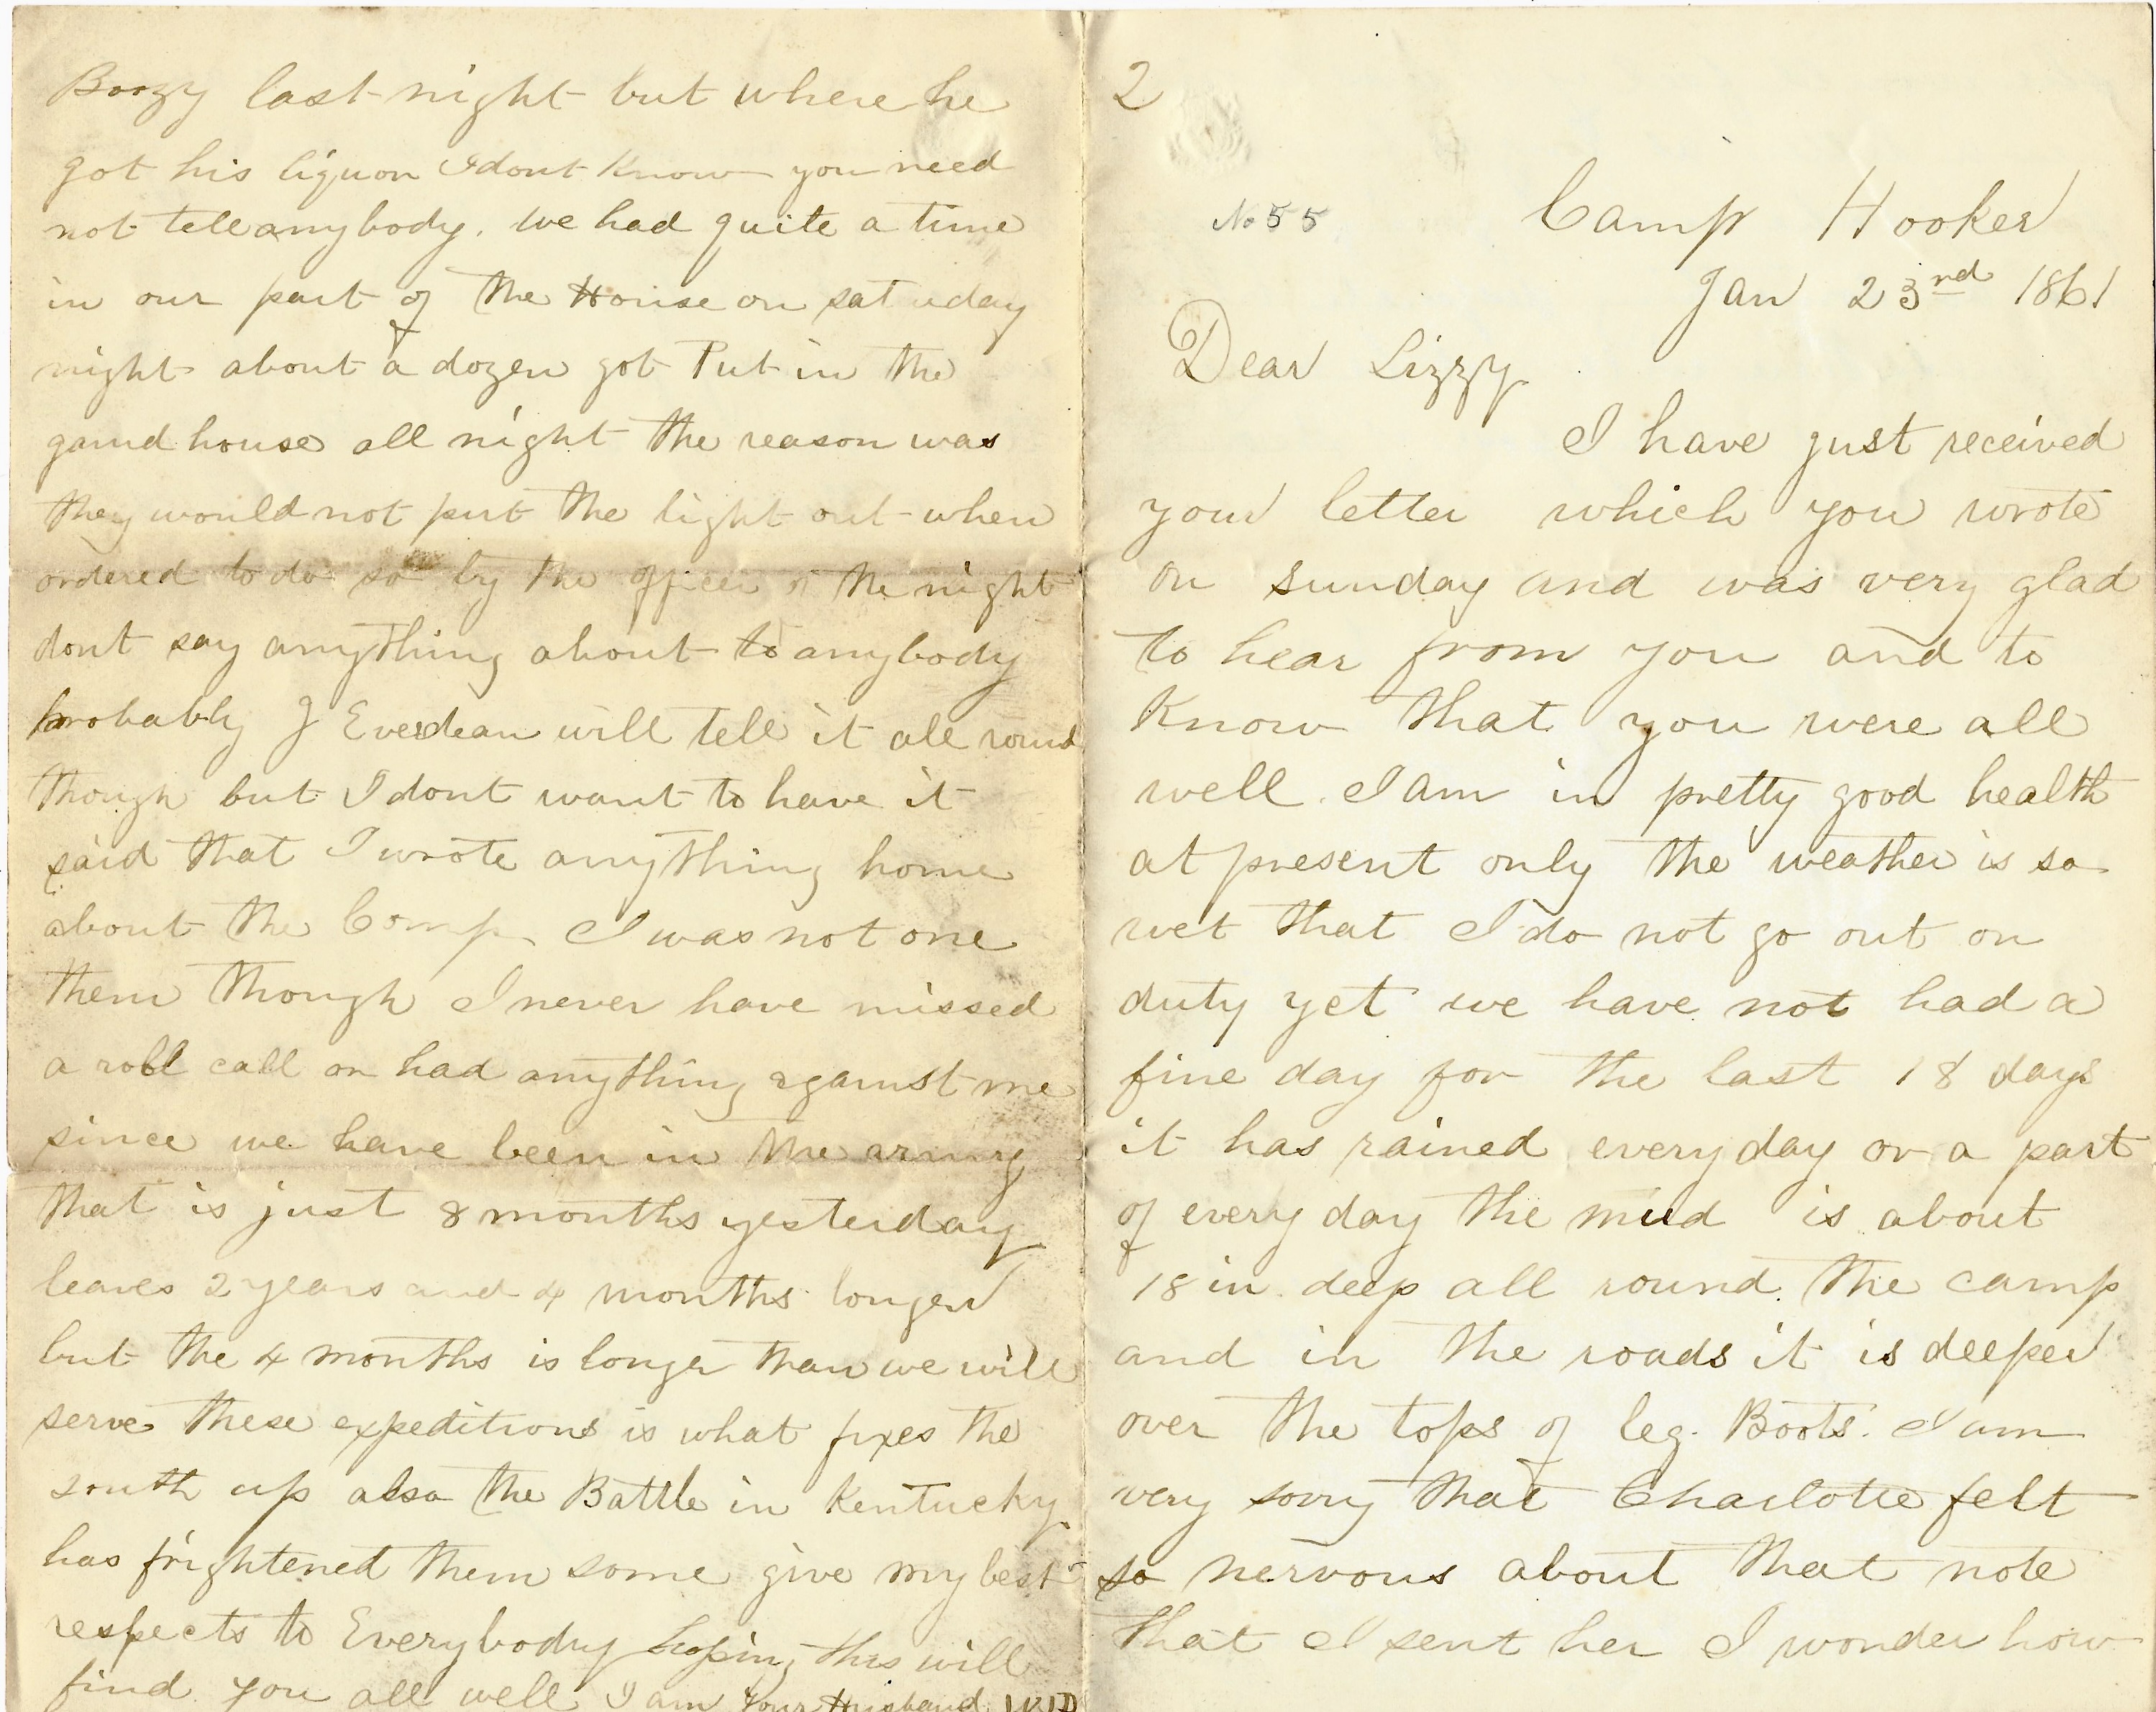 2
No 55
Camp Hooker
Jan 23rd 1861
Dear Lizzy
I have just received
your letter which you wrote
on sunday and was very glad
to hear from you and to
Know that you were all
well. I am in pretty good health
at present only the weather is so
wet that I do not go out on
duty yet we have not had a
fine day for the last 18 days
it has rained every day or a part
of every day the mud is about
18 in. deep all round the camp
and in the roads it is deeper
over the tops of leg. Boots. I am
very sorry that Charlotte felt
so nervous about that note
that I sent her I wonder how
Boozy last night but where he
got his liquor I dont Know you need
not tell anybody. we had quite a time
in our part of the House on satuday
night about a dozen got Put in the
gaurd house all night the reason was
they would not put the light out when
ordered to do so by the officer of the night
dont say anything about to anybody
probably J Everdean will tell it all round
though but I dont want to have it
said that I wrote anything home
about the Comp. I was not one
them though I never have missed
a roll call or had anything against me
since we have been in the army
that is just 8 months yesterday
leaves 2 years and 4 months longer
but the 4 months is longer than we will
serve these expeditions is what fixes the
south up also the Battle in Kentucky
has frightened them some give my best
respects to Everybody hoping this will
find you all well I am Your Husband WD